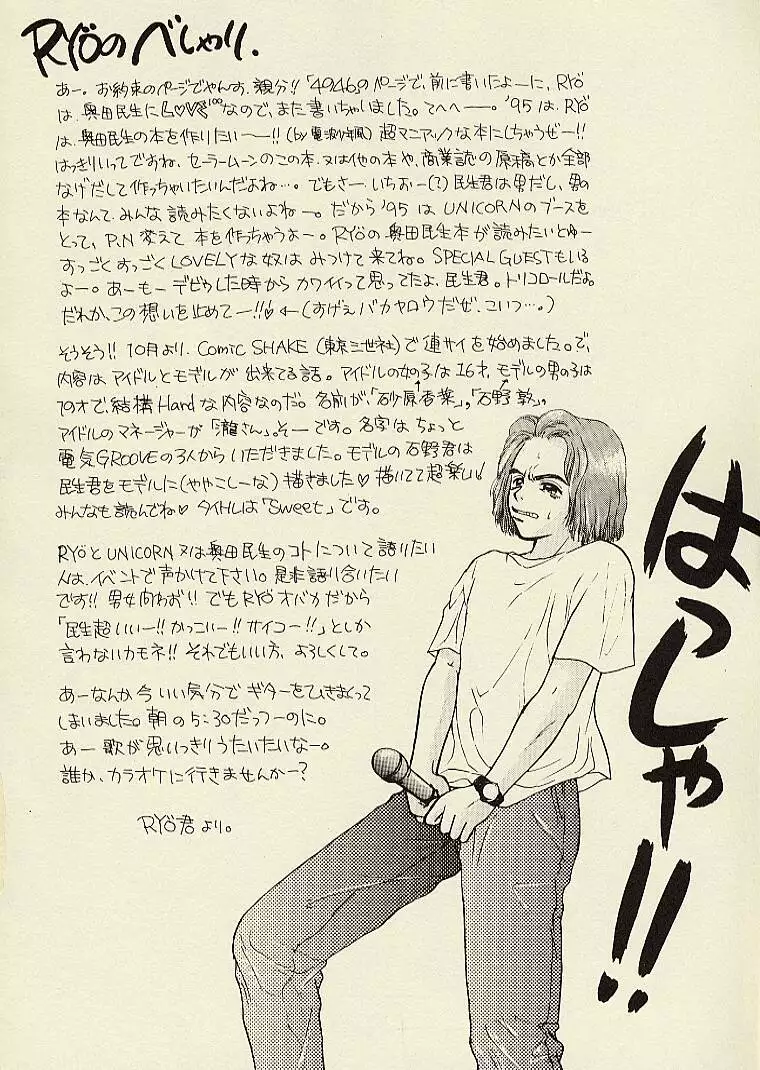 RYÖのべしゃり.
あー。お約束のページでやんす、親分!!「4946」のページで、前に書いたよーに、RYÖ
は、奥田民生にLOVE¹⁰⁰なので、また書いちゃいました。てへへー。'95は、RYÖ
は、奥田民生の本を作りたいー!!(by 電波少年風)超マニアックな本にしちゃうぜー!!
はっきりいってですね、セーラームーンのこの本、又は他の本や、商業誌の原稿とか全部
なげだして作っちゃいたいんだよね…。でもさー、いちおー(?)民生君は男だし、男の
本なんて、みんな読みたくないよねー。だから'95はUNICORNのブースを
とって、P.N変えて本を作っちゃうよー。RYÖの奥田民生本が読みたいとゆー
すっごくすっごくLOVELYな奴はみつけて来てね。SPECIAL GUESTもいる
よー。あーもーデビゥした時からカワイイって思ってたよ、民生君。トリコロールだよ。
だれか、この想いを止めてー!!♡←(すげえバカヤロウだぜ、こいつ…。)
そうそう!! 10月より、Comic SHAKE(東京三世社)で連サイを始めました。で、
内容はアイドルとモデルが出来てる話。アイドルの女の子は16才、モデルの男の子は
20才で、結構Hardな内容なのだ。名前が、「砂原香菜」、「石野敦」、
アイドルのマネージャーが「瀧さん」。そーです。名字はちょっと
電気GROOVEの3人からいただきました。モデルの石野君は
民生君をモデルに(ややこしーな)描きました♡描いてて超楽しい!
みんなも読んでね♡タイトルは「Sweet」です。
RYÖとUNICORN又は奥田民生のコトについて語りたい
人は、イベントで声かけて下さい。是非語り合いたい
です!! 男女向わず!! でもRYÖオバカだから
「民生超いいー!!かっこいー!!サイコー!!」としか
言わないカモネ!! それでもいい方、よろしくして。
あーなんか今いい気分でギターをひきまくって
しまいました。朝の5:30だっつーのに。
あー歌が思いっきりうたいたいなー。
誰か、カラオケに行きませんかー?
RYÖ君より。
はっしゃ!!